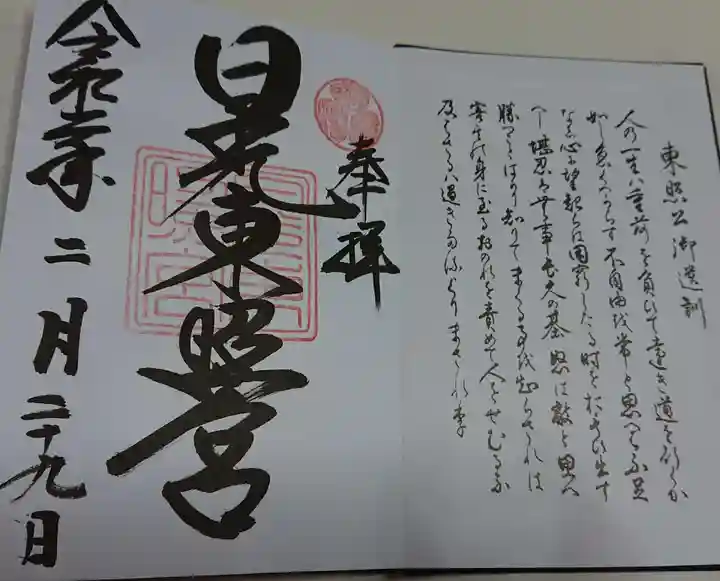 東照公御遺訓
人の一生ハ重荷を負ひて遠き道を行くか
如し急くへからす不自由を常と思へは不足
なし心に望起らは困窮したる時を思ひ出す
へし堪忍は無事長久の基怒は敵と思へ
勝つことはかり知りてまくる事を知らされは
害其の身に至るおのれを責めて人をせむるな
及はさるハ過きたるよりまされり
奉拝
日光東照宮
令和年二月二十九日